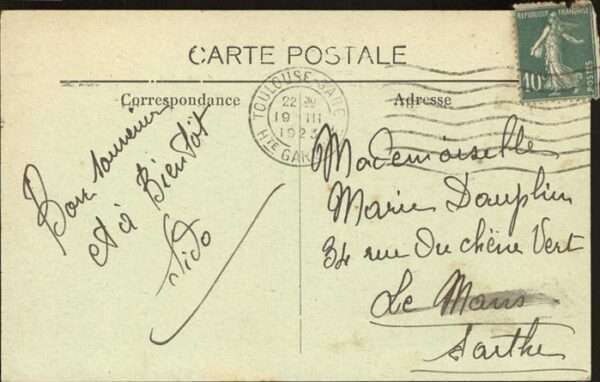 CARTE POSTALE
Correspondance
Adresse
REPUBLIQUE FRANÇAISE
10
POSTES
TOULOUSE-GARE
22
19 III
1923
HTE GAR
Bon souvenir
et à Bientôt
Sido
Mademoiselle
Marie Dauphin
34 rue Du chêne Vert
Le Mans
Sarthe